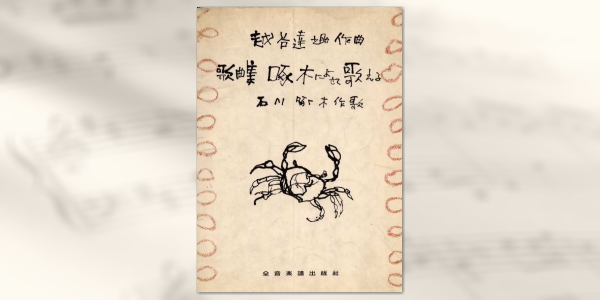 越谷達之助作曲
歌曲集 啄木によせて歌える
石川啄木作歌
全音楽譜出版社